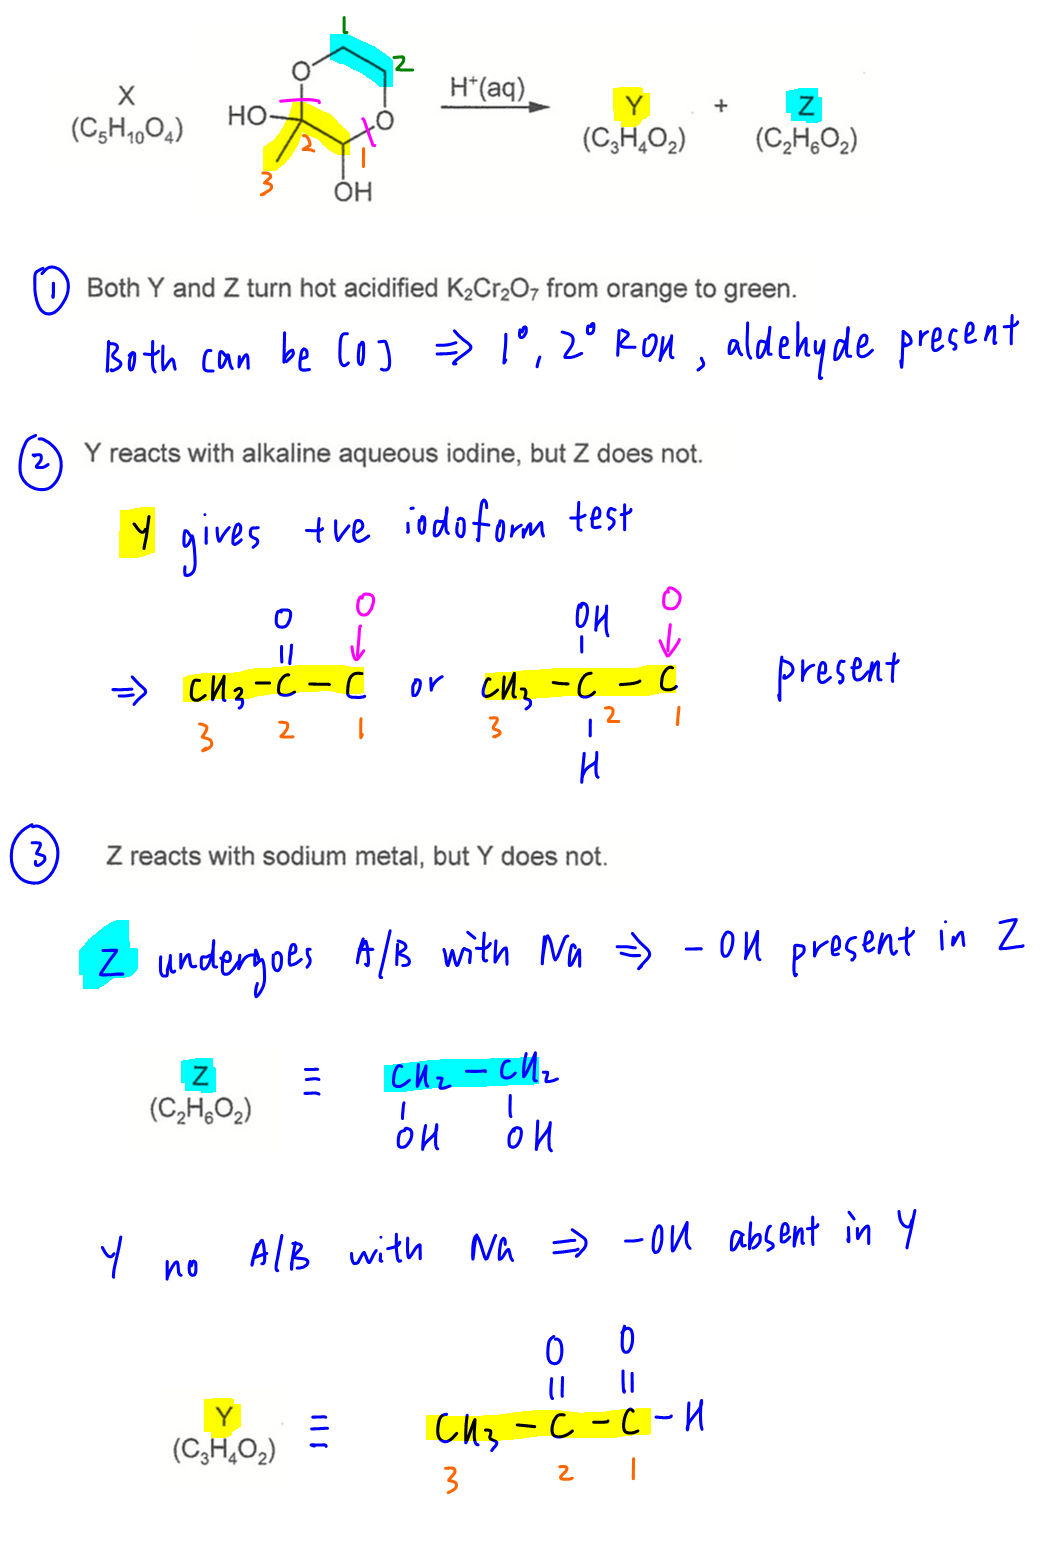 1
2
O
H⁺(aq)
X
Y + Z
(C₅H₁₀O₄)
HO
O
(C₃H₄O₂)
(C₂H₆O₂)
2
1
3
OH
1 Both Y and Z turn hot acidified K₂Cr₂O₇ from orange to green.
Both can be [O] ⇒ 1°, 2° ROH, aldehyde present
2 Y reacts with alkaline aqueous iodine, but Z does not.
Y gives +ve iodoform test
O O OH O
⇒ CH₃ - C - C or CH₃ - C - C present
3 2 1 3 2 1
H
3 Z reacts with sodium metal, but Y does not.
Z undergoes A/B with Na ⇒ - OH present in Z
Z ≡ CH₂ - CH₂
(C₂H₆O₂)
OH OH
Y no A/B with Na ⇒ -OH absent in Y
O O
Y ≡ CH₃ - C - C - H
(C₃H₄O₂)
3 2 1